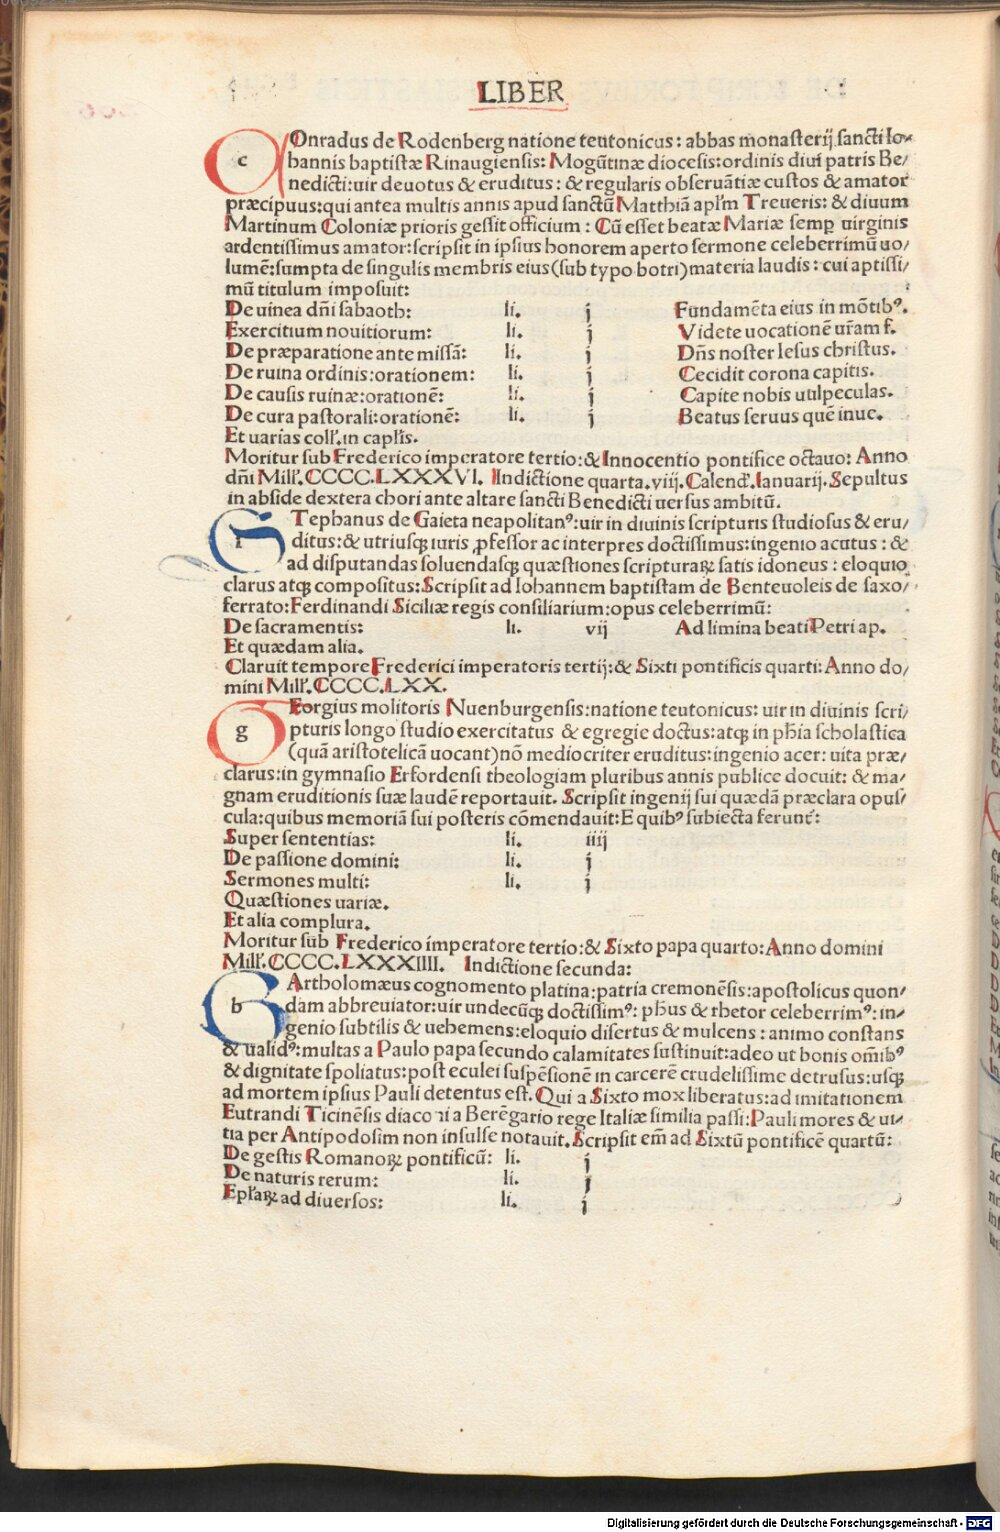 LIBER
COnradus de Rodenberg natione teutonicus: abbas monasterij sancti Io-
hannis baptistæ Rinaugiensis: Mogūtinæ diocesis: ordinis diui patris Be/
nedicti: uir deuotus & eruditus: & regularis obseruātiæ custos & amator
præcipuus: qui antea multis annis apud sanctū Matthiā apl'm Treueris: & diuum
Martinum Coloniæ prioris gessit officium: Cū esset beatæ Mariæ semꝑ uirginis
ardentissimus amator: scripsit in ipsius honorem aperto sermone celeberrimū uo/
lumē: sumpta de singulis membris eius (sub typo botri) materia laudis: cui aptissi/
mū titulum imposuit:
De uinea dn̄i sabaoth: li. j Fundamēta eius in mōtibꝰ.
Exercitium nouitiorum: li. j Videte uocationē ur̄am f.
De præparatione ante missā: li. j Dn̄s noster Iesus christus.
De ruina ordinis: orationem: li. j Cecidit corona capitis.
De causis ruinæ: orationē: li. j Capite nobis uulpeculas.
De cura pastorali: orationē: li. j Beatus seruus quē inue.
Et uarias coll'. in capl'is.
Moritur sub Frederico imperatore tertio: & Innocentio pontifice octauo: Anno
dn̄i Mill'. CCCC. LXXXVI. Indictione quarta. viij. Calend'. Ianuarij. Sepultus
in abside dextera chori ante altare sancti Benedicti uersus ambitū.
STephanus de Gaieta neapolitanꝰ: uir in diuinis scripturis studiosus & eru/
ditus: & utriusqꝫ iuris ꝓfessor ac interpres doctissimus: ingenio acutus: &
ad disputandas soluendasqꝫ quæstiones scripturaꝝ satis idoneus: eloquio
clarus atqꝫ compositus: Scripsit ad Iohannem baptistam de Benteuoleis de saxo/
ferrato: Ferdinandi Siciliæ regis consiliarium: opus celeberrimū:
De sacramentis: li. vij Ad limina beati Petri ap.
Et quædam alia.
Claruit tempore Frederici imperatoris tertij: & Sixti pontificis quarti: Anno do/
mini Mill'. CCCC. LXX.
gEorgius molitoris Nuenburgensis: natione teutonicus: uir in diuinis scri/
pturis longo studio exercitatus & egregie doctus: atqꝫ in ph̄ia scholastica
(quā aristotelicā uocant) nō mediocriter eruditus: ingenio acer: uita præ/
clarus: in gymnasio Erfordensi theologiam pluribus annis publice docuit: & ma/
gnam eruditionis suæ laudē reportauit. Scripsit ingenij sui quædā præclara opus/
cula: quibus memoriā sui posteris cōmendauit: E quibꝰ subiecta ferunt':
Super sententias: li. iiij
De passione domini: li. j
Sermones multi: li. j
Quæstiones uariæ.
Et alia complura.
Moritur sub Frederico imperatore tertio: & Sixto papa quarto: Anno domini
Mill'. CCCC. LXXXIIII. Indictione secunda:
bArtholomæus cognomento platina: patria cremonēsis: apostolicus quon/
dam abbreuiator: uir undecūqꝫ doctissimꝰ: ph̄us & rhetor celeberrimꝰ: in-
genio subtilis & uehemens: eloquio disertus & mulcens: animo constans
& ualidꝰ: multas a Paulo papa secundo calamitates sustinuit: adeo ut bonis om̄ibꝰ
& dignitate spoliatus: post eculei suspēsionē in carcerē crudelissime detrusus: usqꝫ
ad mortem ipsius Pauli detentus est. Qui a Sixto mox liberatus: ad imitationem
Eutrandi Ticinēsis diaconi a Berēgario rege Italiæ similia passi: Pauli mores & ui-
tia per Antipodosim non insulse notauit. Scripsit em̄ ad Sixtū pontificē quartū:
De gestis Romanoꝝ pontificū: li. j
De naturis rerum: li. j
Epl'aꝝ ad diuersos: li. j
Digitalisierung gefördert durch die Deutsche Forschungsgemeinschaft - DFG